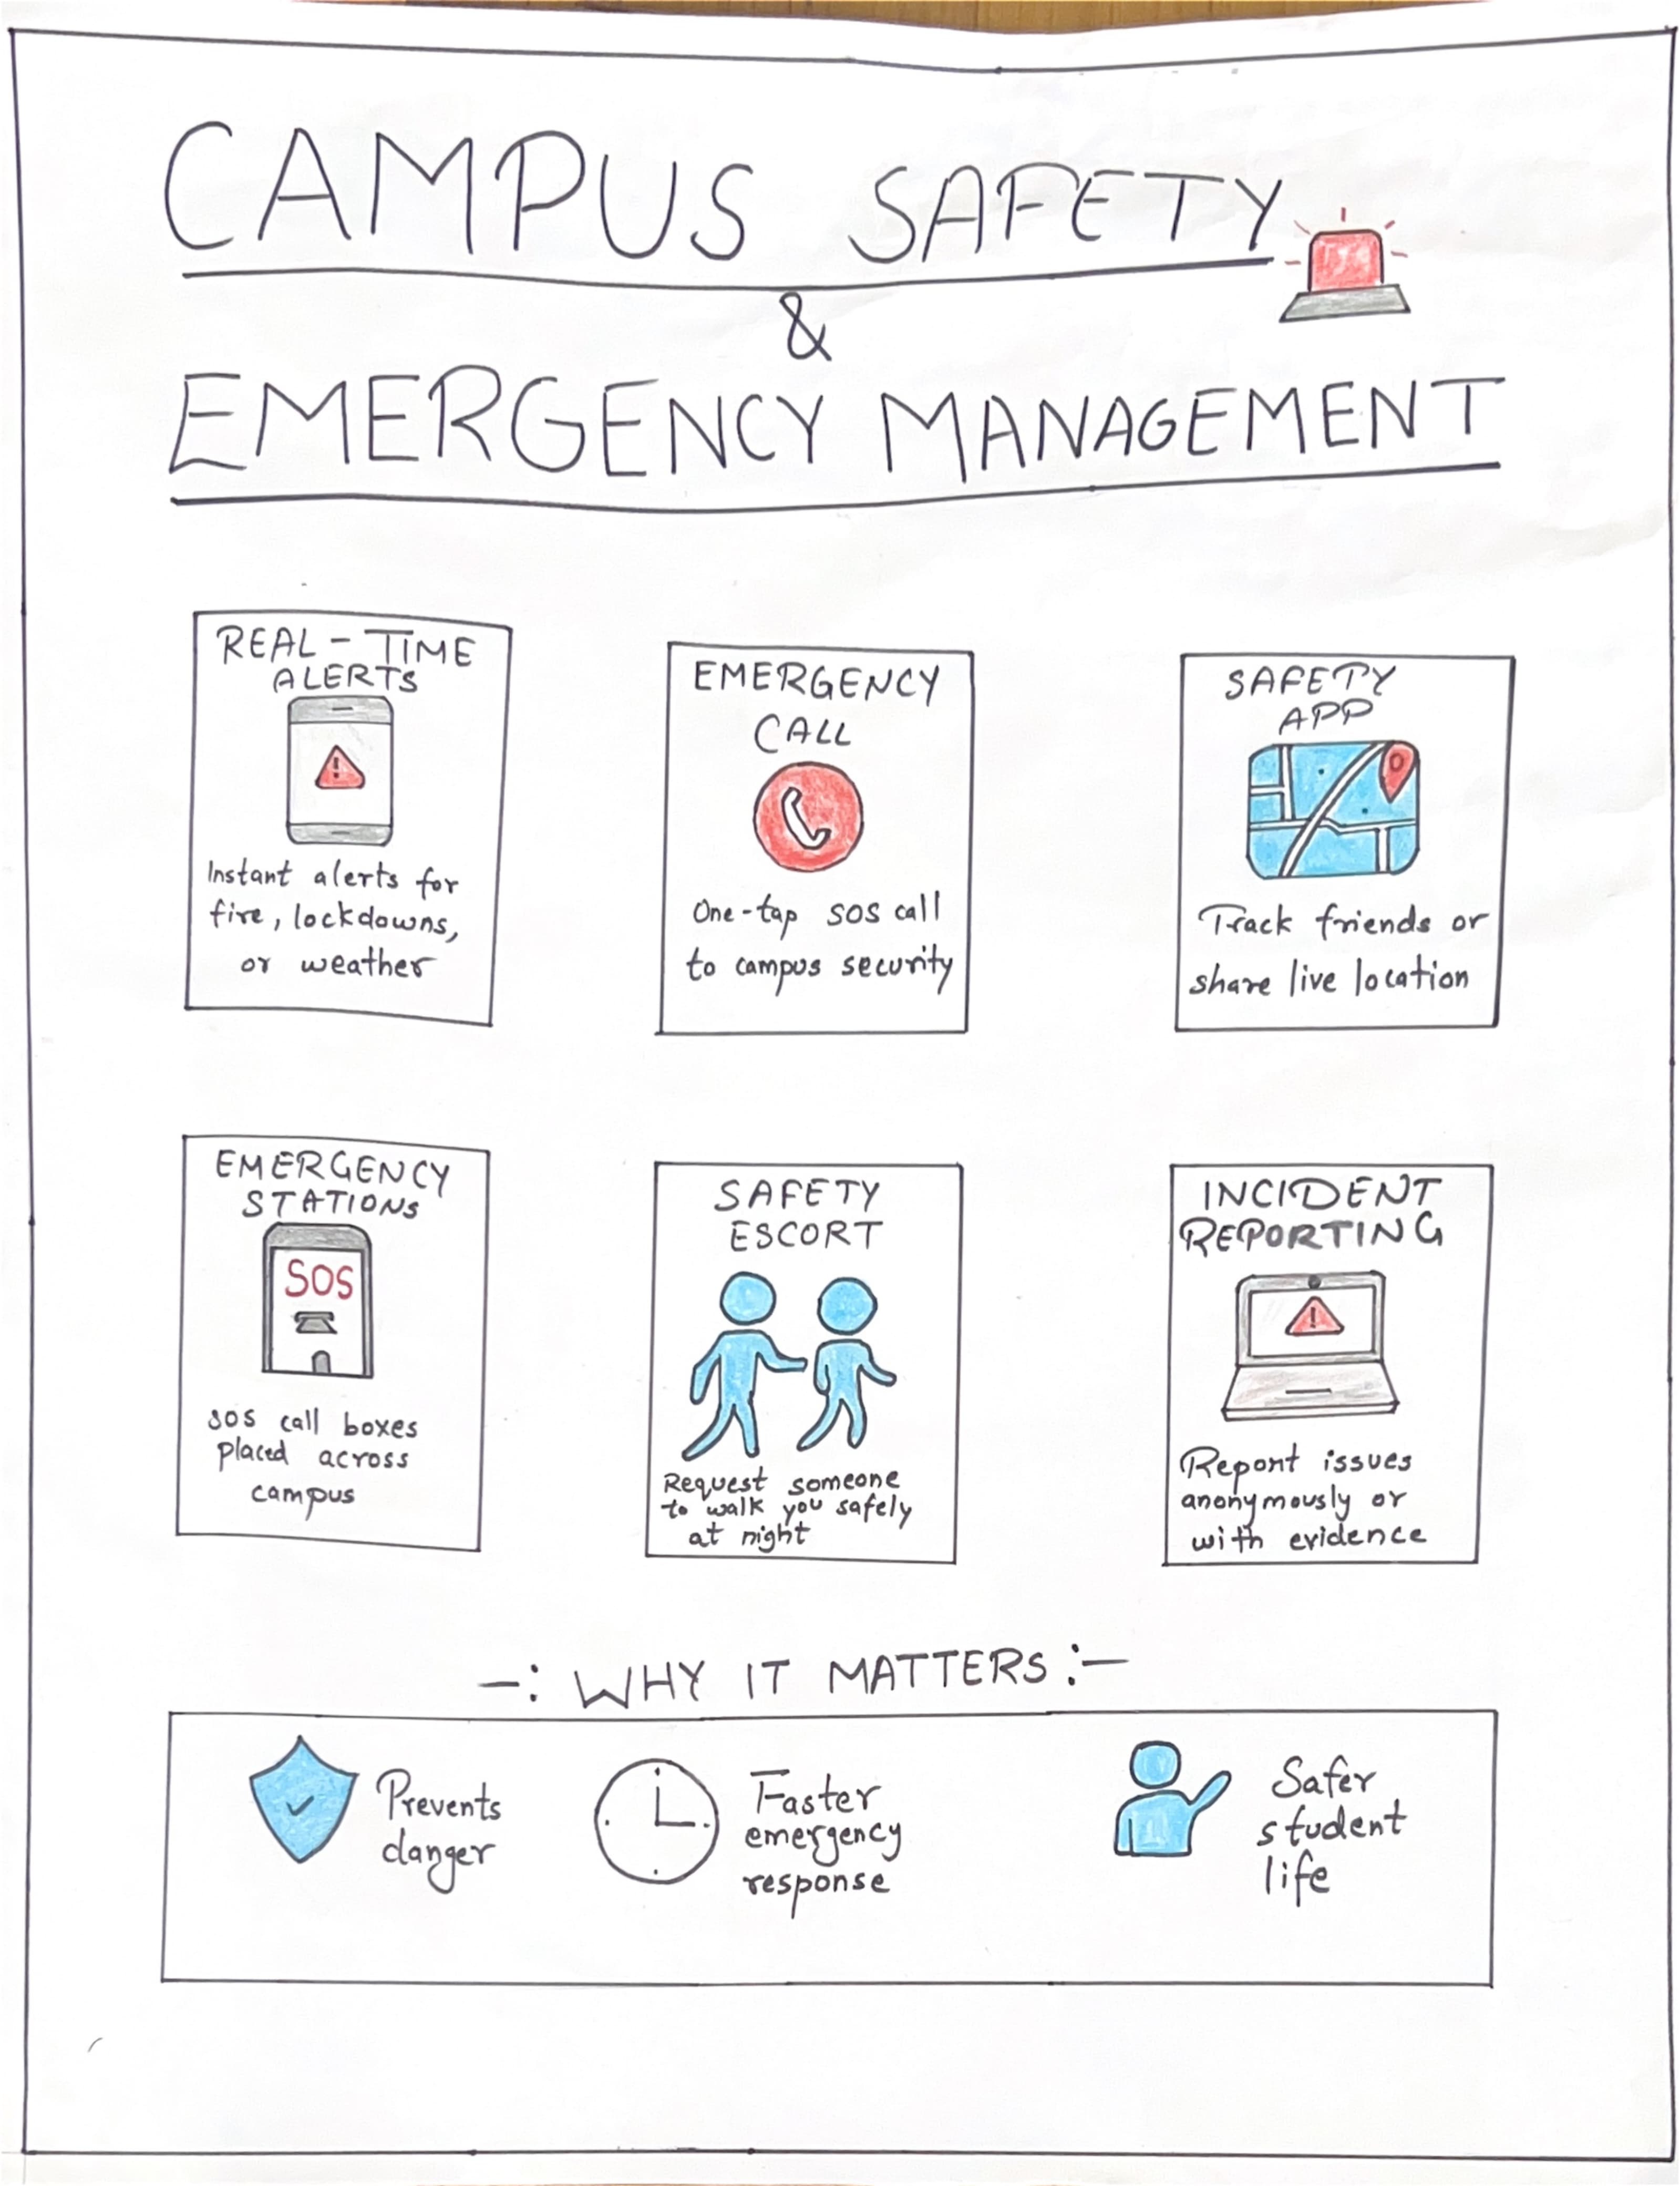 CAMPUS SAFETY
&
EMERGENCY MANAGEMENT
REAL-TIME
ALERTS
!
Instant alerts for
fire, lockdowns,
or weather
EMERGENCY
CALL
One-tap SOS call
to campus security
SAFETY
APP
Track friends or
share live location
EMERGENCY
STATIONS
SOS
SOS call boxes
placed across
campus
SAFETY
ESCORT
Request someone
to walk you safely
at night
INCIDENT
REPORTING
!
Report issues
anonymously or
with evidence
-: WHY IT MATTERS :-
Prevents
danger
Faster
emergency
response
Safer
student
life